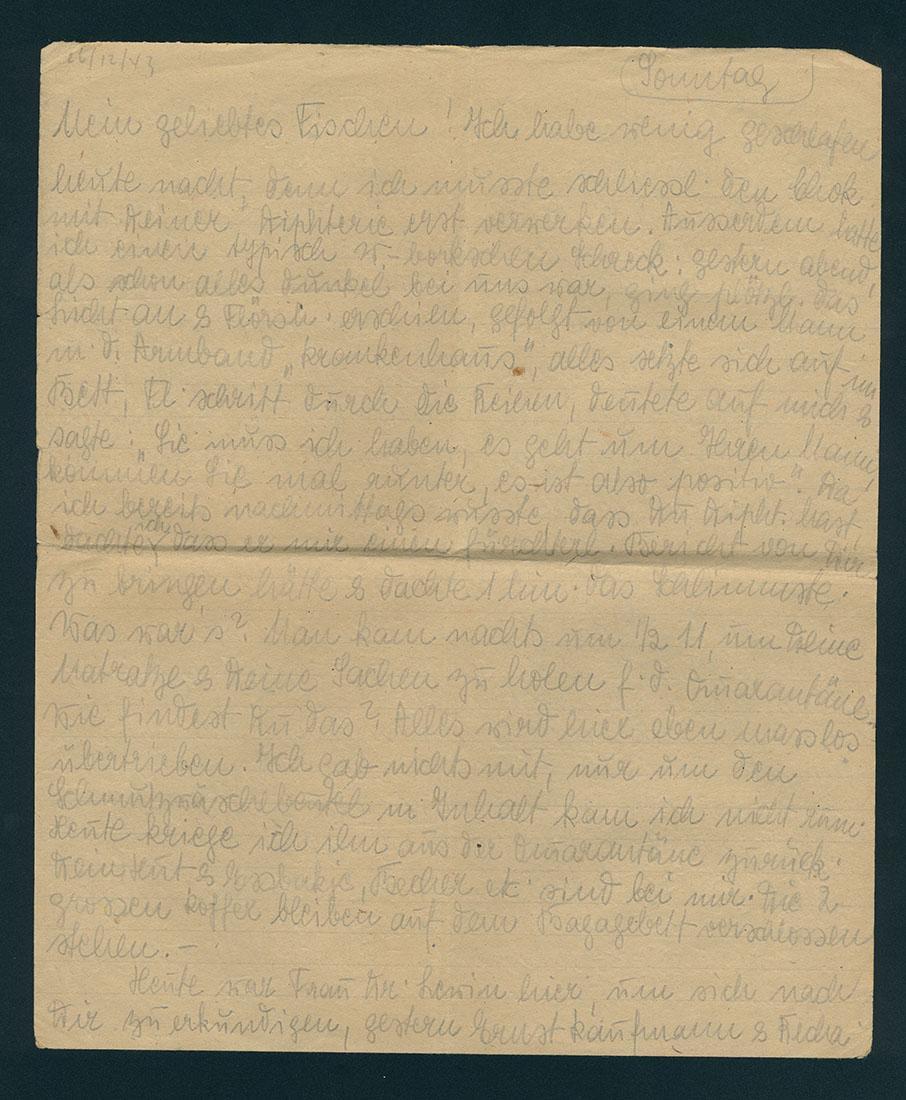 26/12/43
Sonntag
Mein geliebtes Fischen! Ich habe wenig geschlafen
heute nacht, denn ich musste schliessl. den Chok
mit Deiner Diphterie erst verwerken. Ausserdem hatte
ich einen typisch W-borkschen Schreck: gestern abend,
als schon alles dunkel bei uns war, ging plötzl. das
Licht an & Flörsh. erschien, gefolgt von einem Mann
m. d. Armband „Krankenhaus", alles setzte sich auf im
Bett, Fl. schritt durch die Reihen, deutete auf mich &
sagte: Sie muss ich haben, es geht um Ihren Mann,
kommen Sie mal runter, es ist also positiv". Da
ich bereits nachmittags wusste, dass Du Dipht. hast,
dachte ich, dass er mir einen fürchterl. Bericht von Dir
zu bringen hätte & dachte 1 Min. das Schlimmste.
Was war's? Man kam nachts um ½ 11, um Deine
Matratze & Deine Sachen zu holen f. d. Quarantäne.
Wie findest Du das? Alles wird hier eben masslos
übertrieben. Ich gab nichts mit, nur um den
Schmutzwäschebeutel m. Inhalt kam ich nicht rum.
Heute kriege ich ihn aus der Quarantäne zurück.
Dein Hut & Essbakje, Becher etc. sind bei mir. Die 2
grossen Koffer bleiben auf dem Bagagebett verschlossen
stehen. –
Heute war Frau Dr. Lewin hier, um sich nach
Dir zu erkundigen, gestern Ernst Kaufmann &